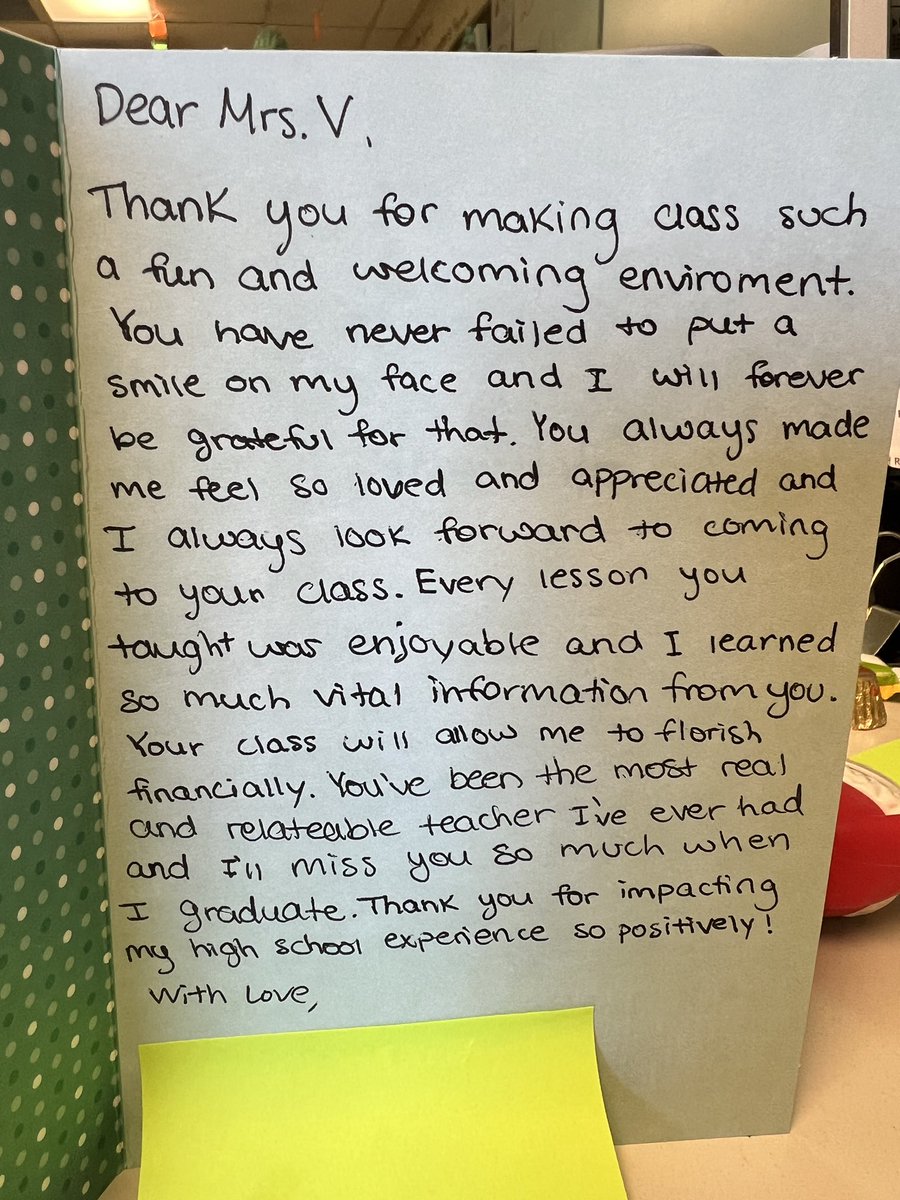 Dear Mrs. V,
Thank you for making class such
a fun and welcoming enviroment.
You have never failed to put a
smile on my face and I will forever
be grateful for that. You always made
me feel so loved and appreciated and
I always look forward to coming
to your class. Every lesson you
taught was enjoyable and I learned
so much vital information from you.
Your class will allow me to florish
financially. You've been the most real
and relateable teacher I've ever had
and I'll miss you so much when
I graduate. Thank you for impacting
my high school experience so positively!
With Love,